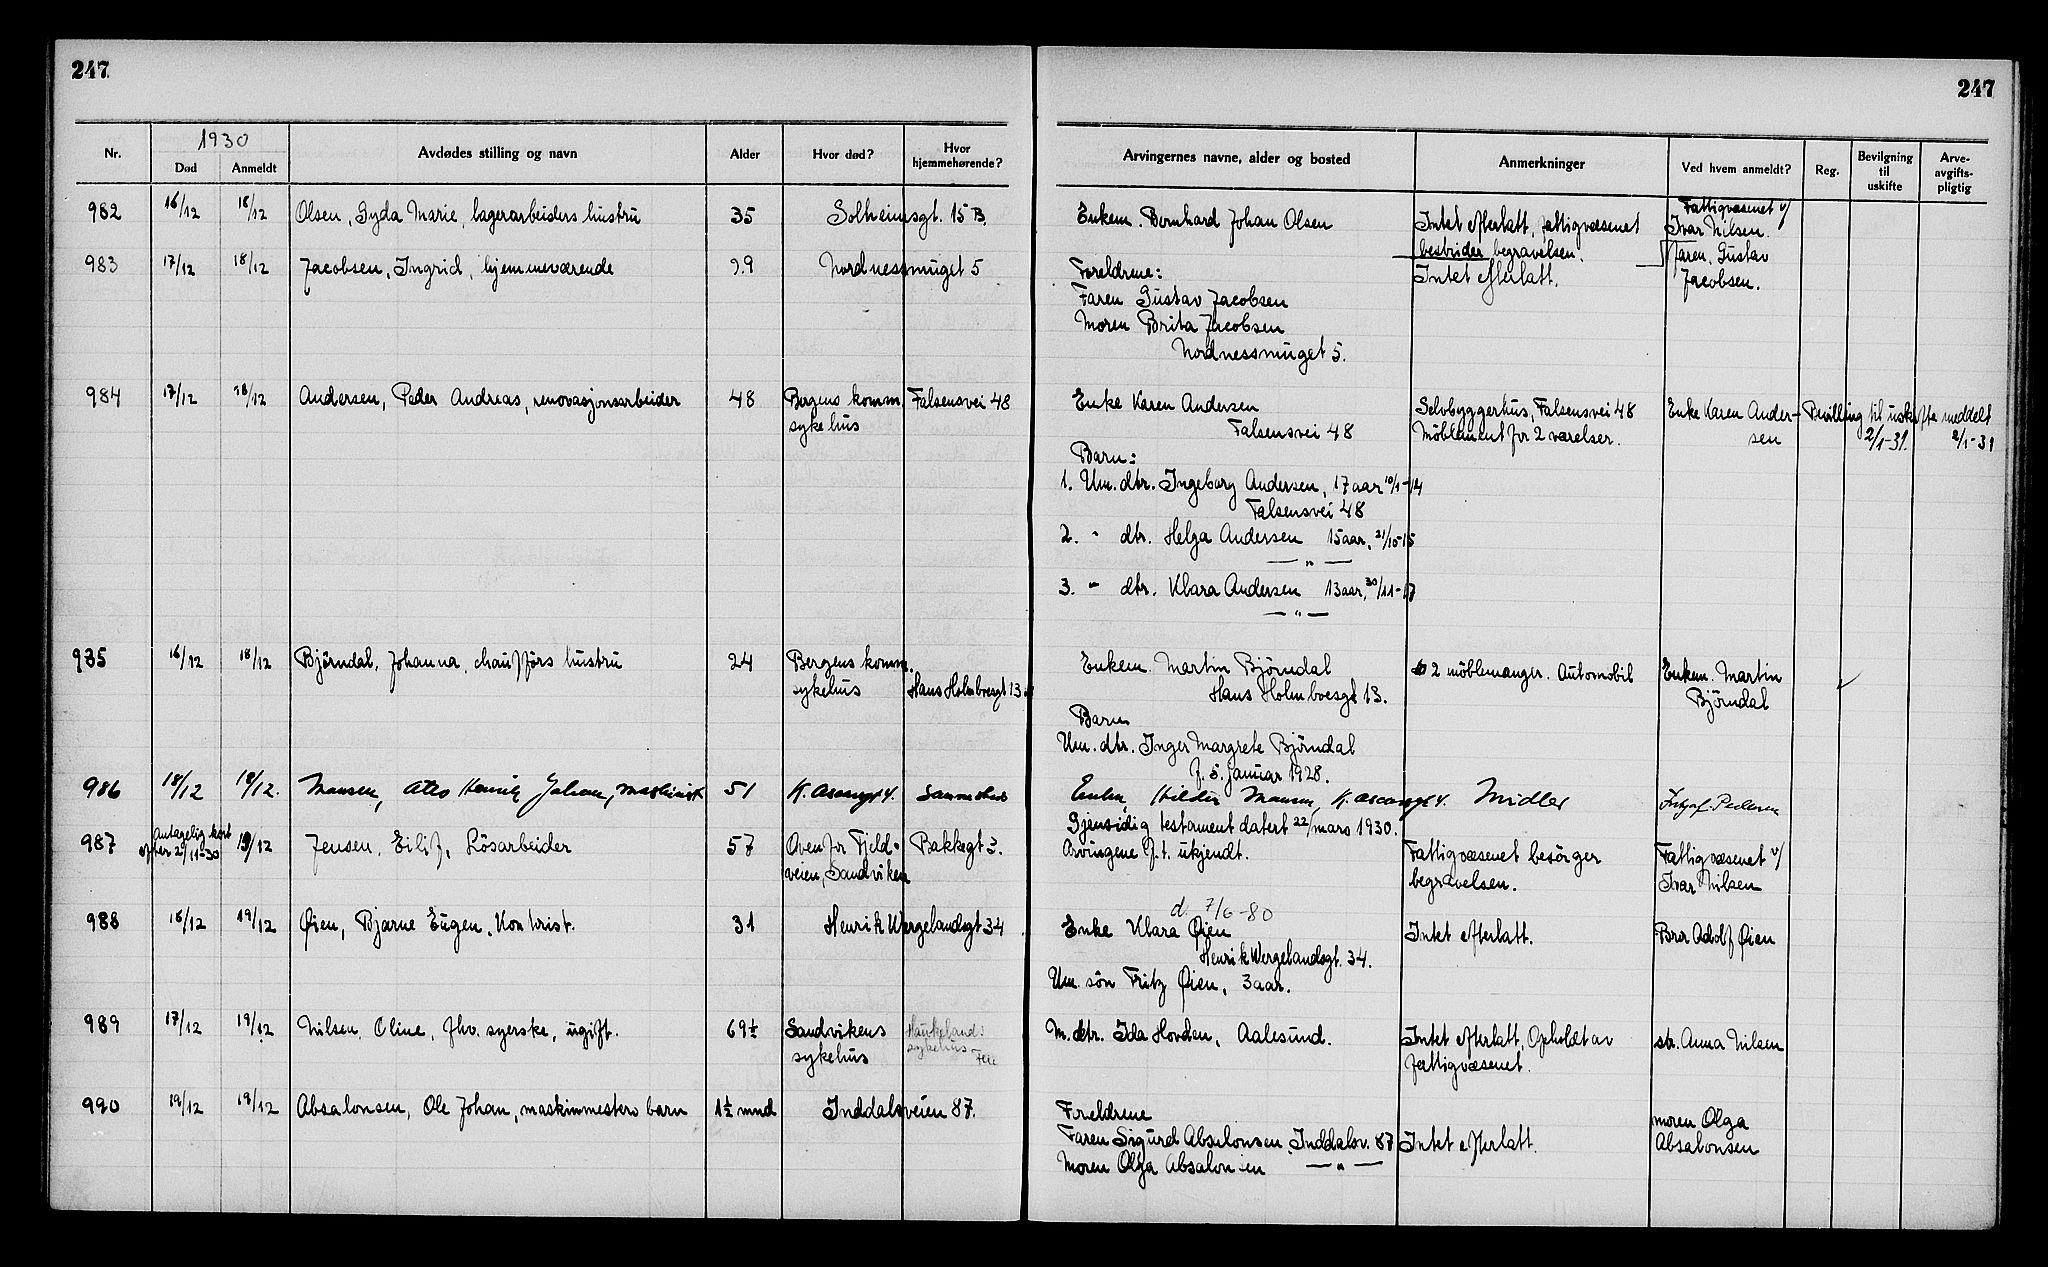 247
247
1930
Nr.
Død
Anmeldt
Avdødes stilling og navn
Alder
Hvor død?
Hvor hjemmehørende?
Arvingernes navne, alder og bosted
Anmerkninger
Ved hvem anmeldt?
Reg.
Bevilgning til uskifte
Arve-avgifts-pligtig
982 16/12 18/12 Olsen, Gyda Marie, lagerarbeiders hustru 35 Solheimsgt. 15 B. Enkem. Bernhard Johan Olsen Intet efterlatt, fattigvæsenet Fattigvæsenet v/
bestrider begravelsen. Ivar Nilsen.
983 17/12 18/12 Jacobsen, Ingrid, hjemmeværende 29 Nordnessmuget 5 Foreldrene: Intet efterlatt. Faren, Gustav
Faren Gustav Jacobsen Jacobsen.
Moren Brita Jacobsen
Nordnessmuget 5.
984 17/12 18/12 Andersen, Peder Andreas, renovasjonsarbeider 48 Bergens komm. Falsensvei 48 Enke Karen Andersen Selvbyggerhus, Falsensvei 48 Enke Karen Ander- Bevilling til uskifte meddelt
sykehus Falsensvei 48 Møblement for 2 værelser. sen 2/1-31. 2/1-31
Barn:
1. Um. dtr. Ingeborg Andersen, 17 aar 10/1-14
Falsensvei 48
2. " dtr. Helga Andersen 15 aar, 21/10-15
— " —
3. " dtr. Klara Andersen 13 aar, 30/11-17
— " —
985 16/12 18/12 Björndal, Johanna, chaufförs hustru 24 Bergens komm. Enkem. Martin Björndal 2 möblemanger. Automobil Enkem. Martin
sykehus Hans Holmboesgt 13 Hans Holmboesgt 13. Björndal
Barn
Um. dtr. Inger Margrete Björndal
f. 5. januar 1928.
986 18/12 18/12. Monsen, Otto Henrik Johan, maskinist 51 K. Oscarsgt 4. Samme sted Enken, Hilda Monsen, K. Oscarsgt 4. Midler Pedersen
Gjensidig testament datert 22/mars 1930.
987 Antagelig kort 19/12 Jensen, Eilif, Lösarbeider 57 Ovenfor Fjeld- Bakkegt 3. Arvingene f.t. ukjendt. Fattigvæsenet besörger Fattigvæsenet v/
efter 29/11-30 veien, Sandviken begravelsen. Ivar Nilsen
d. 7/6-80
988 18/12 19/12 Øien, Bjarne Eugen, Kontorist. 31 Henrik Wergelandsgt 34 Enke Klara Øien Intet efterlatt. Bror Adolf Øien
Henrik Wergelandsgt. 34.
Um. sön Fritz Øien, 3 aar.
989 17/12 19/12 Nilsen, Oline, fhv. syerske, ugift. 69½ Sandvikens Haukeland M. dtr. Ida Hovden, Aalesund. Intet efterlatt, Opholdt av str. Anna Nilsen
sykehus sykehus fattigvæsenet.
990 19/12 19/12 Absalonsen, Ole Johan, maskinmesters barn 1½ mnd Inddalsveien 87. Foreldrene moren Olga
Faren Sigurd Absalonsen, Inddalsv. 87 Intet efterlatt. Absalonsen
Moren Olga Absalonsen — " —